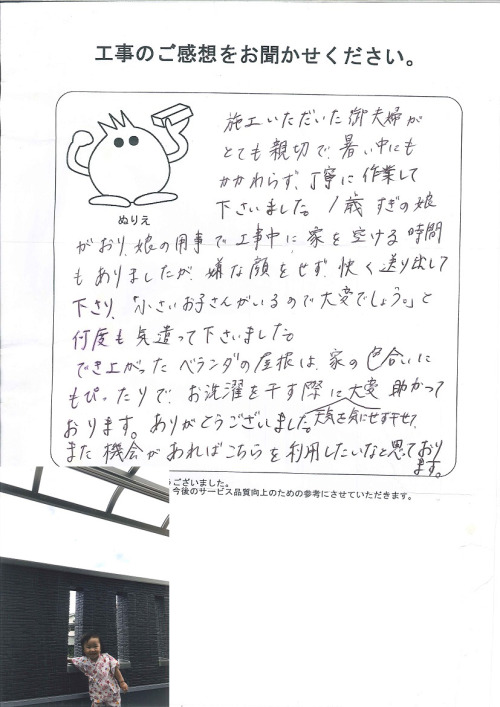 工事のご感想をお聞かせください。
施工いただいた御夫婦が
とても親切で、暑い中にも
かかわらず、丁寧に作業して
下さいました。1歳すぎの娘
ぬりえ
がおり、娘の用事で工事中に家を空ける時間
もありましたが、嫌な顔をせず、快く送り出して
下さり、「小さいお子さんがいるので大変でしょう。」と
何度も気遣って下さいました。
でき上がったベランダの屋根は、家の色合いに
もぴったりで、お洗濯を干す際に大変助かって
おります。ありがとうございました。天気を気にせず干せて、
また機会があればこちらを利用したいなと思っており
ます。
うございました。
今後のサービス品質向上のための参考にさせていただきます。